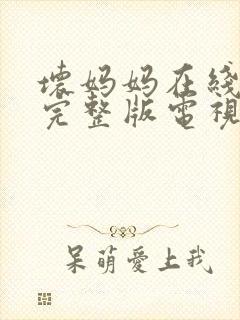 壞妈妈在线
完整版電視
呆萌愛上我